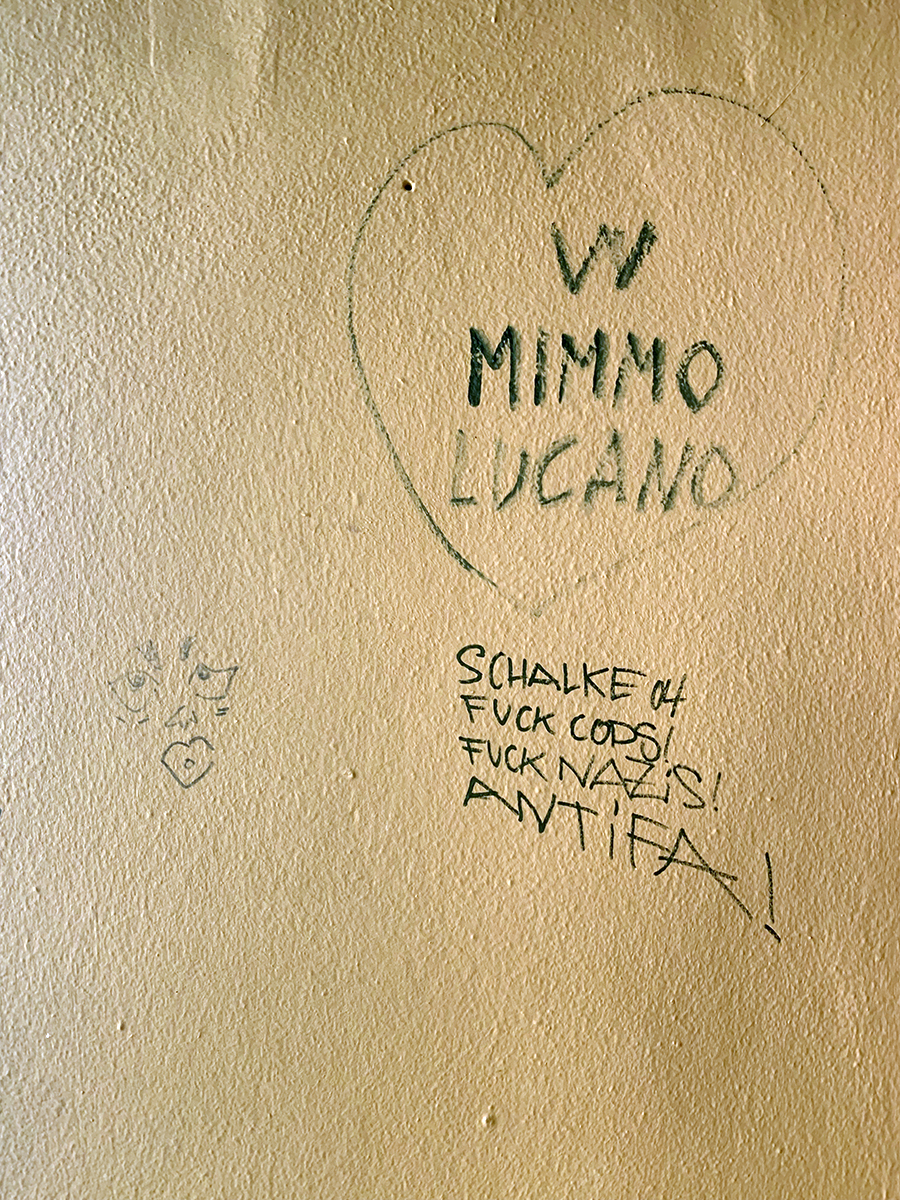 W
MIMMO
LUCANO
SCHALKE 04
FUCK COPS!
FUCK NAZiS!
ANTiFA!